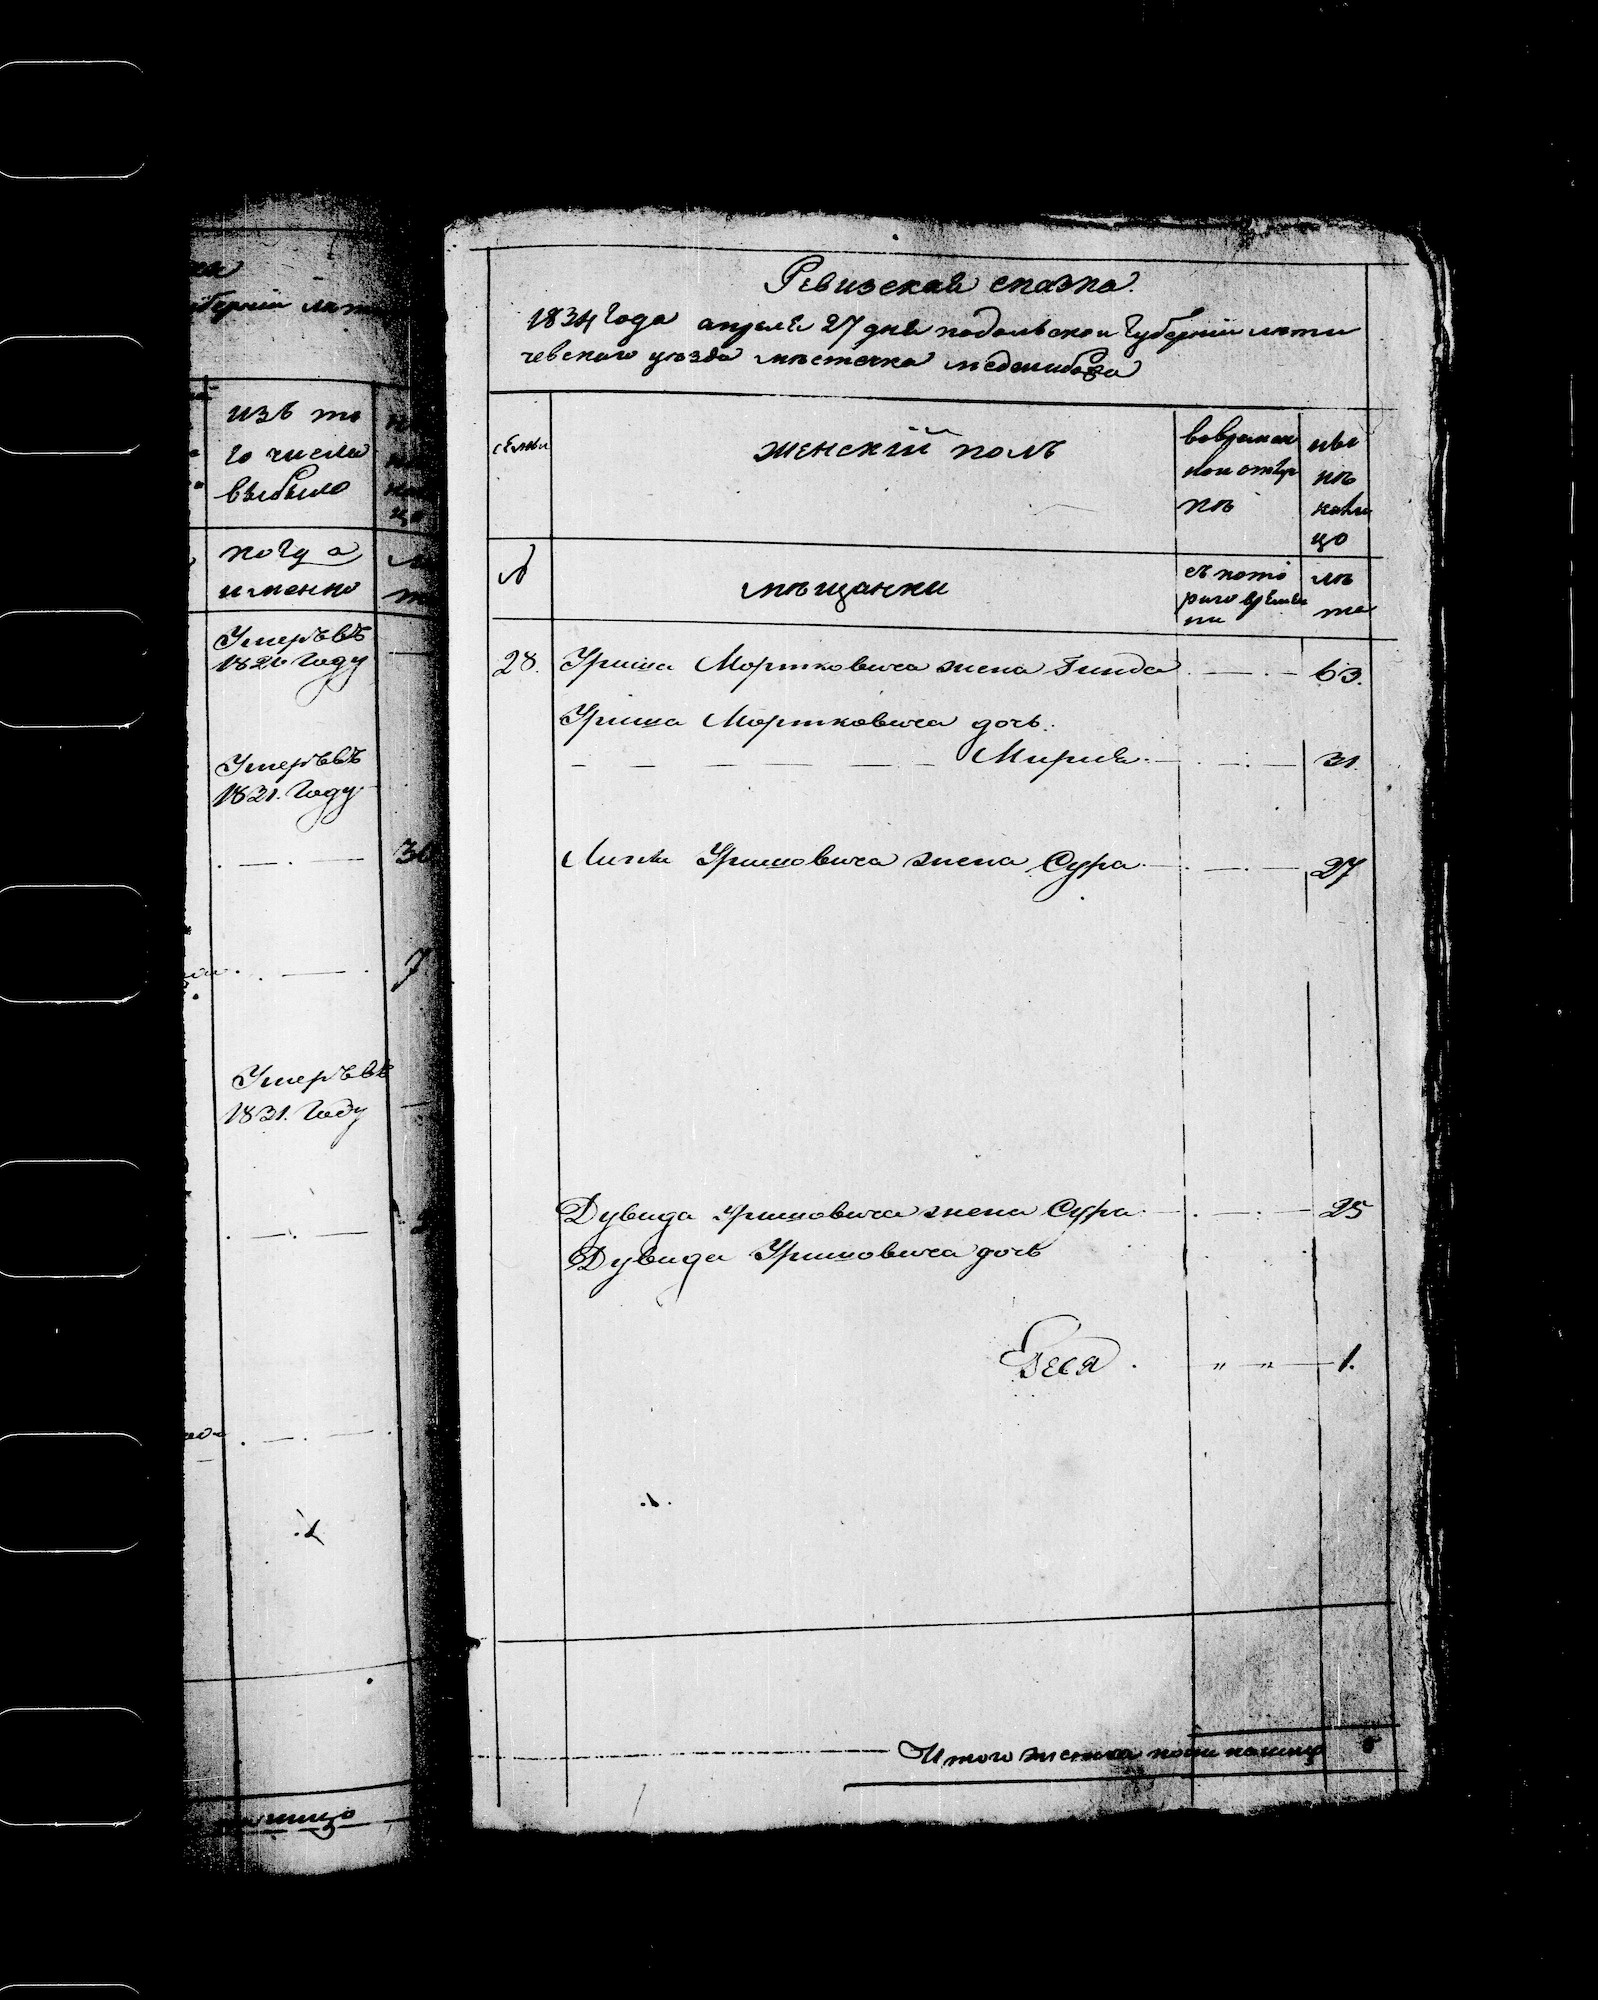 изъ то
го числа
выбыло
когда
именно
Умеръ въ
1826 Году
Умеръ въ
1831. Году
36
7
Умеръ въ
1831. Году
Ревизская сказка.
1834 Года апреля 27 дня подольской Губернии лети
чевского уезда местечка меджибожа
семьи
женскій полъ
во времен
ной отлуч
ке
ны
не
на ли
цо
№
мещанки
съ кото
раго времени
ле
та
28. Уриша Мортковича жена Гинда 63.
Уриша Мортковича дочь.
Мириа. 31.
Лейзи Уришовича жена Сура 27
Дувида Уришовича жена Сура 25
Дувида Уришовича дочь
Бася. " " 1.
Итого женска пола налицо 5